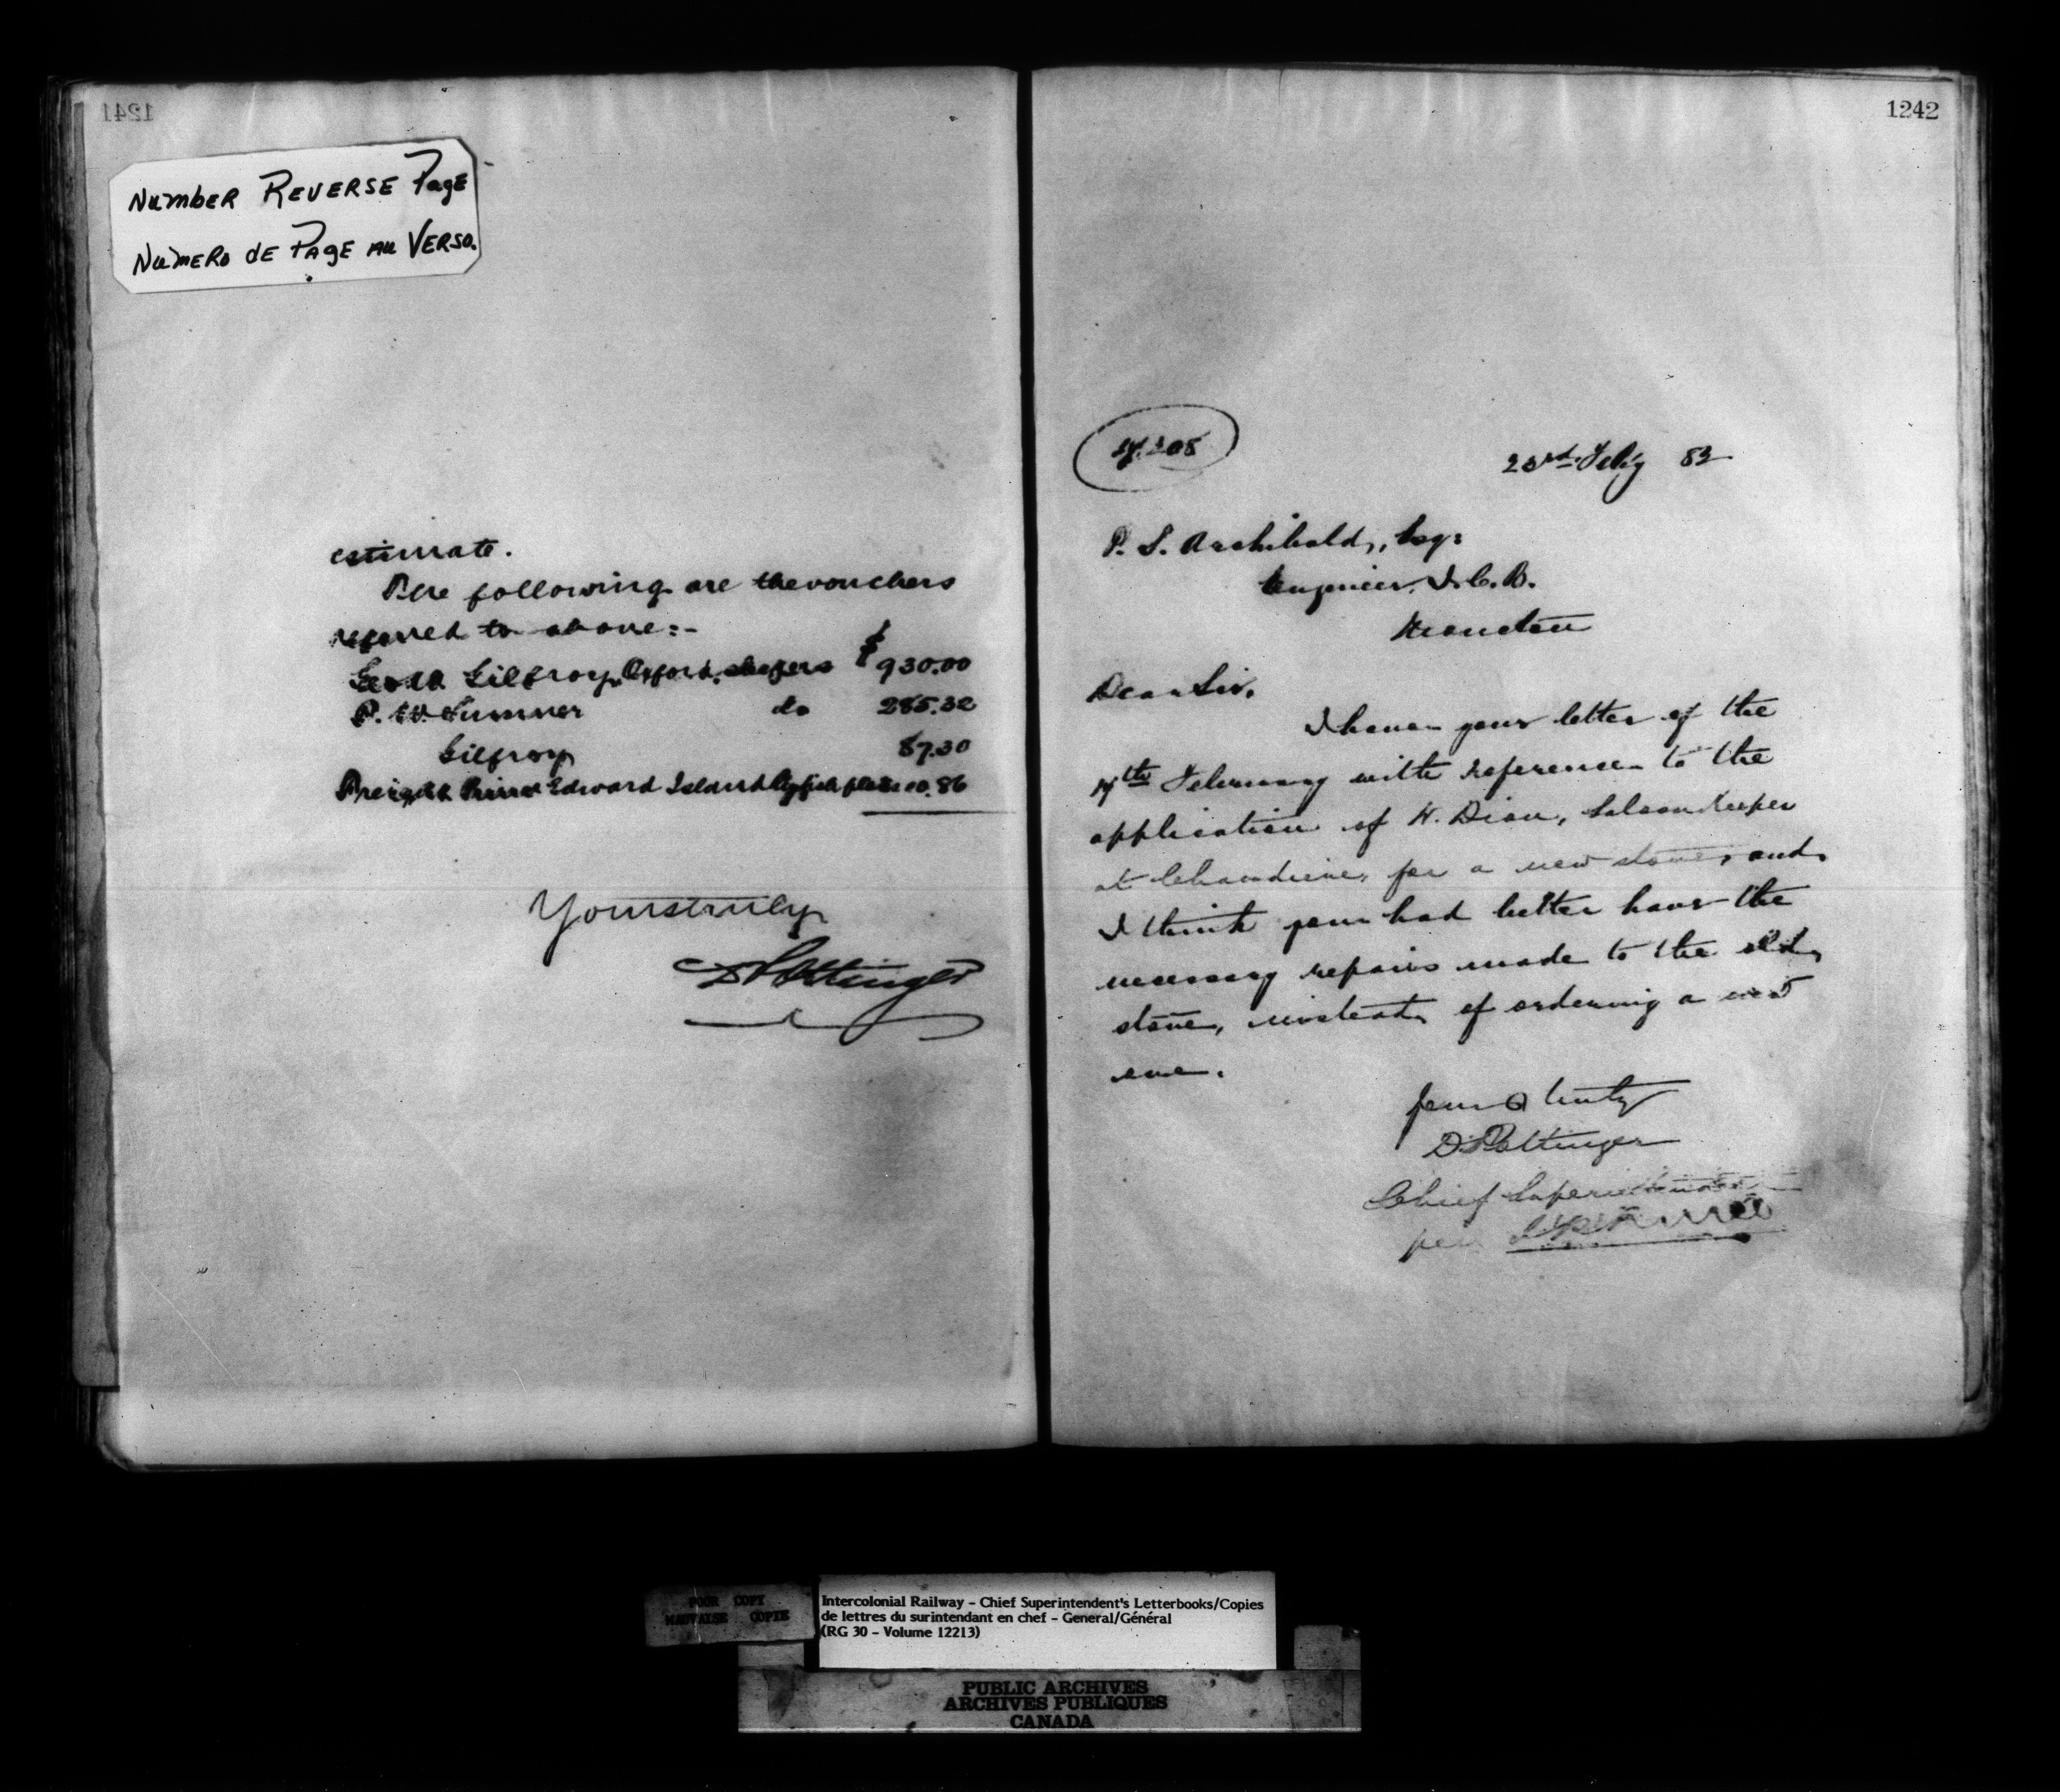 1241
NUMBER REVERSE PAGE
NUMERO DE PAGE AU VERSO.
estimate.
The following are the vouchers
referred to above:-
Gilfroy, Oxford, sleepers $930.00
P. W. Sumner do 285.32
Gilfroy 87.30
Freight Prince Edward Island 10.86
Yours truly
D Pottinger
1242
23rd Feby 83
P. S. Archibald, Esq:
Engineer, I.C.R.
Moncton
Dear Sir,
I have your letter of the
14th February with reference to the
application of H. Dion, Saloon Keeper
at Chaudiere, for a new stove, and
I think you had better have the
necessary repairs made to the old
stove, instead of ordering a new
one.
Yours truly
D Pottinger
Chief Superintendent
per
POOR COPY
MAUVAISE COPIE
Intercolonial Railway - Chief Superintendent's Letterbooks/Copies
de lettres du surintendant en chef - General/Général
(RG 30 - Volume 12213)
PUBLIC ARCHIVES
ARCHIVES PUBLIQUES
CANADA